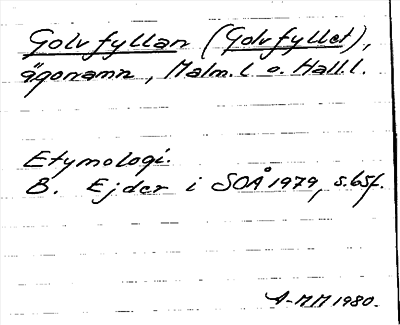 Golvfyllan (Golvfyllet),
ägonamn, Malm.l o. Hall.l.
Etymologi.
B. Ejder i SOÅ 1979, s. 65f.
A-MM 1980.